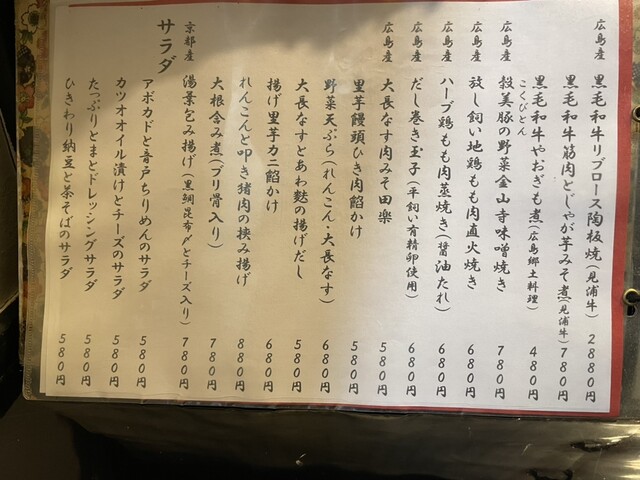 広島産 黒毛和牛リブロース陶板焼(見浦牛) 2880円
黒毛和牛筋肉とじゃが芋みそ煮(見浦牛) 780円
広島産 黒毛和牛やおぎも煮(広島郷土料理) 480円
こくびとん
広島産 穀美豚の野菜金山寺味噌焼き 780円
広島産 放し飼い地鶏もも肉直火焼き 680円
広島産 ハーブ鶏もも肉蒸焼き(醤油たれ) 680円
広島産 だし巻き玉子(平飼い有精卵使用) 680円
広島産 大長なす肉みそ田楽 580円
里芋饅頭ひき肉餡かけ 580円
野菜天ぷら(れんこん・大長なす) 680円
大長なすとあわ麩の揚げだし 580円
揚げ里芋カニ餡かけ 680円
れんこんと叩き猪肉の挟み揚げ 880円
大根含み煮(ブリ骨入り) 780円
京都産 湯葉包み揚げ(黒鯛昆布〆とチーズ入り) 780円
サラダ
アボカドと音戸ちりめんのサラダ 580円
カツオオイル漬けとチーズのサラダ 580円
たっぷりとまとドレッシングサラダ 580円
ひきわり納豆と茶そばのサラダ 580円